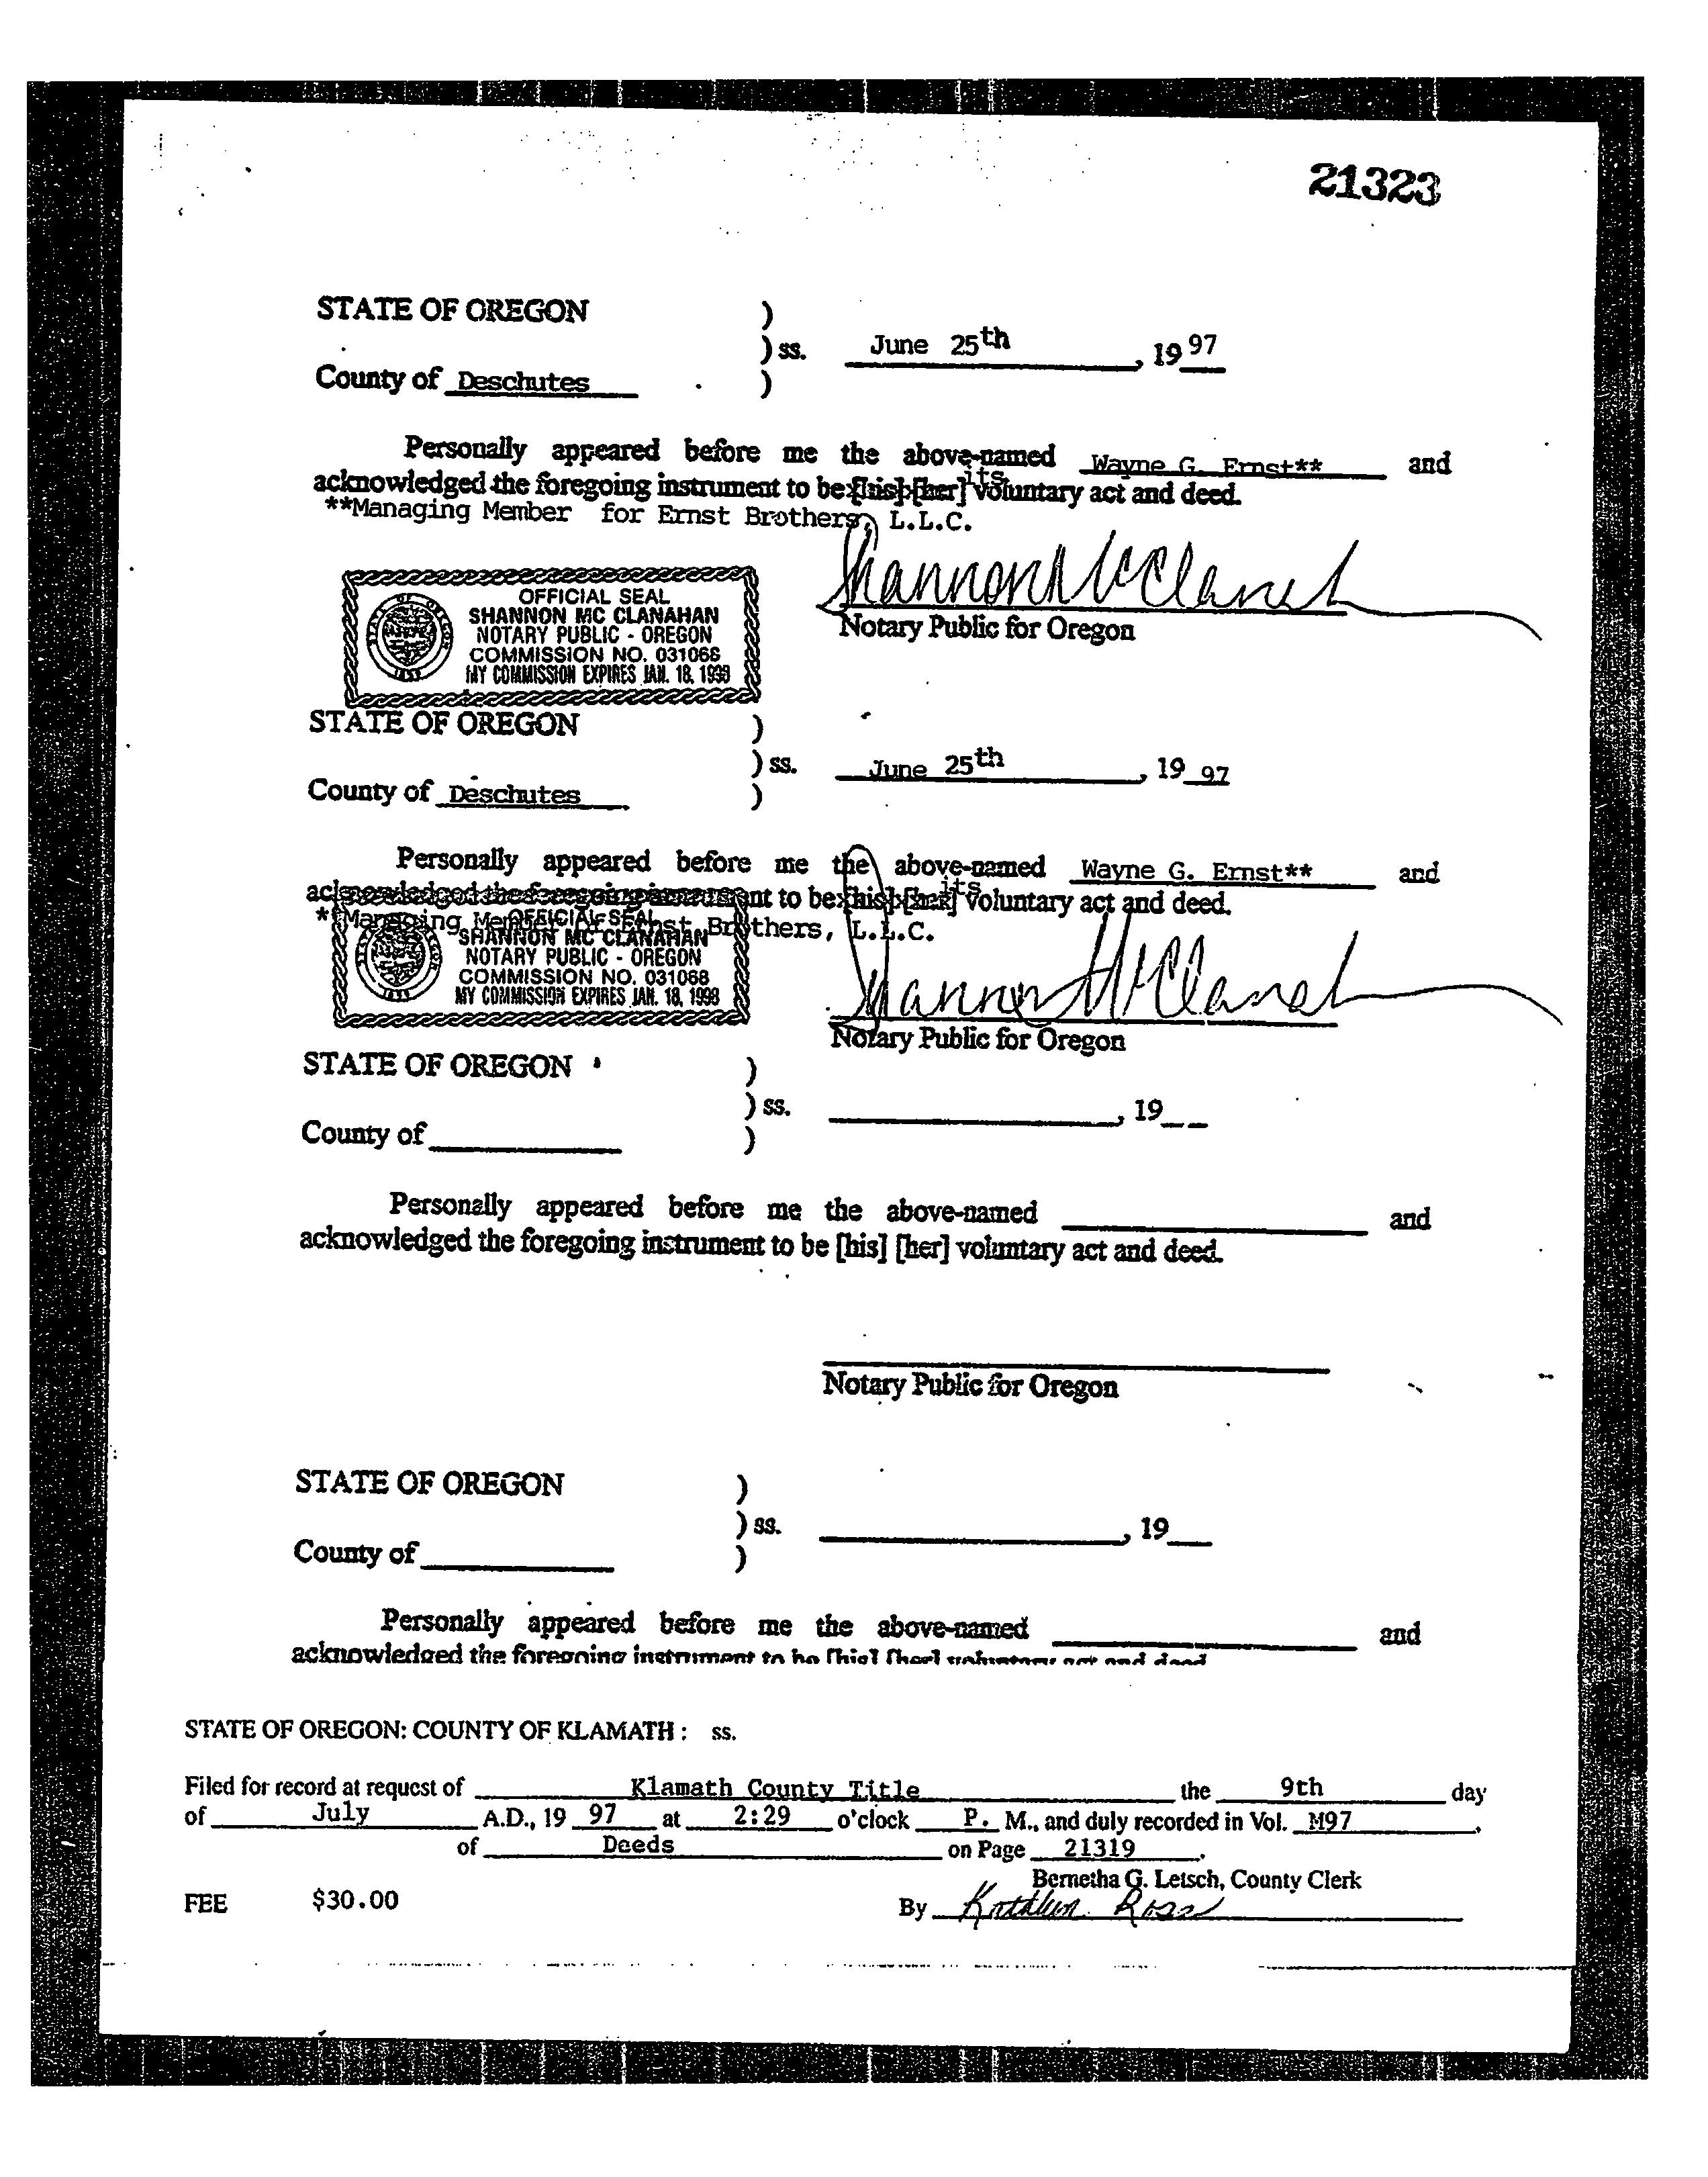 21323
STATE OF OREGON )
) ss. June 25th, 19 97
County of Deschutes )
Personally appeared before me the above-named Wayne G. Ernst** and
acknowledged the foregoing instrument to be [his] [her] its voluntary act and deed.
**Managing Member for Ernst Brothers, L.L.C.
Shannon McClanah
Notary Public for Oregon
OFFICIAL SEAL
SHANNON MC CLANAHAN
NOTARY PUBLIC - OREGON
COMMISSION NO. 031068
MY COMMISSION EXPIRES JAN. 18, 1998
STATE OF OREGON )
) ss. June 25th, 19 97
County of Deschutes )
Personally appeared before me the above-named Wayne G. Ernst** and
acknowledged the foregoing instrument to be [his] [her] its voluntary act and deed.
**Managing Member for Ernst Brothers, L.L.C.
OFFICIAL SEAL
SHANNON MC CLANAHAN
NOTARY PUBLIC - OREGON
COMMISSION NO. 031068
MY COMMISSION EXPIRES JAN. 18, 1998
Shannon McClanah
Notary Public for Oregon
STATE OF OREGON )
) ss. , 19
County of )
Personally appeared before me the above-named and
acknowledged the foregoing instrument to be [his] [her] voluntary act and deed.
Notary Public for Oregon
STATE OF OREGON )
) ss. , 19
County of )
Personally appeared before me the above-named and
acknowledged the foregoing instrument to be [his] [her] voluntary act and deed
STATE OF OREGON: COUNTY OF KLAMATH : ss.
Filed for record at request of Klamath County Title the 9th day
of July A.D., 19 97 at 2:29 o'clock P. M., and duly recorded in Vol. M97,
of Deeds on Page 21319.
Bernetha G. Letsch, County Clerk
FEE $30.00 By Kathleen Ross